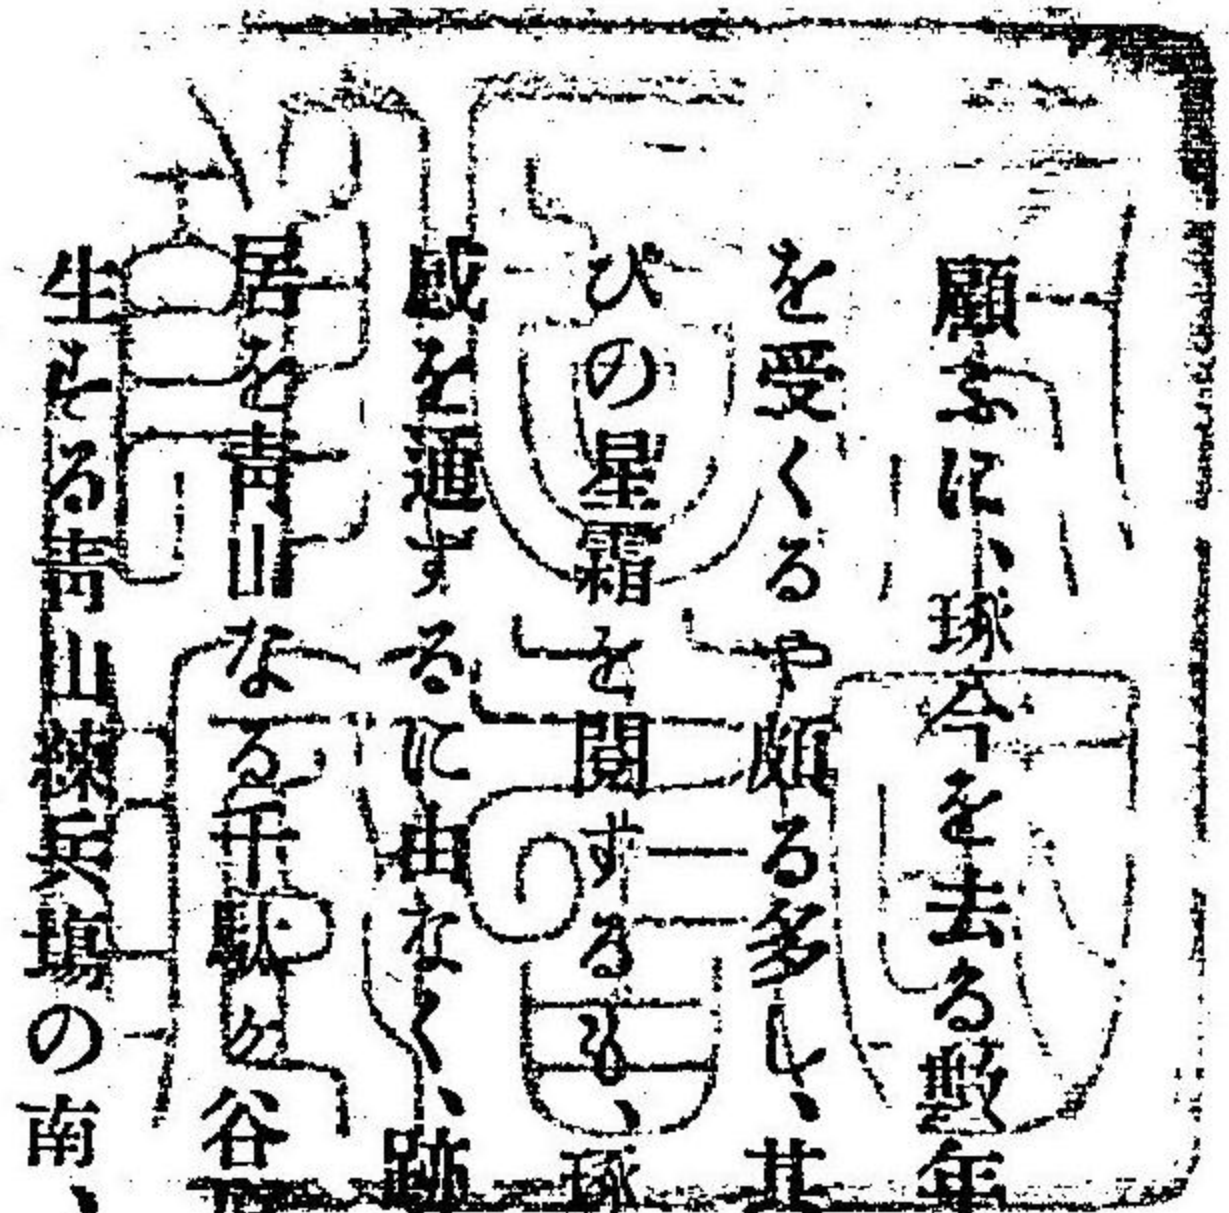 顧ふに、琢今を去る數年
を受くるや頗る多し、其
びの星霜を閲するも、琢
感を通ずるに由なく、跡
居を靑山なる千駄ヶ谷
生ずる靑山練兵塲の南、